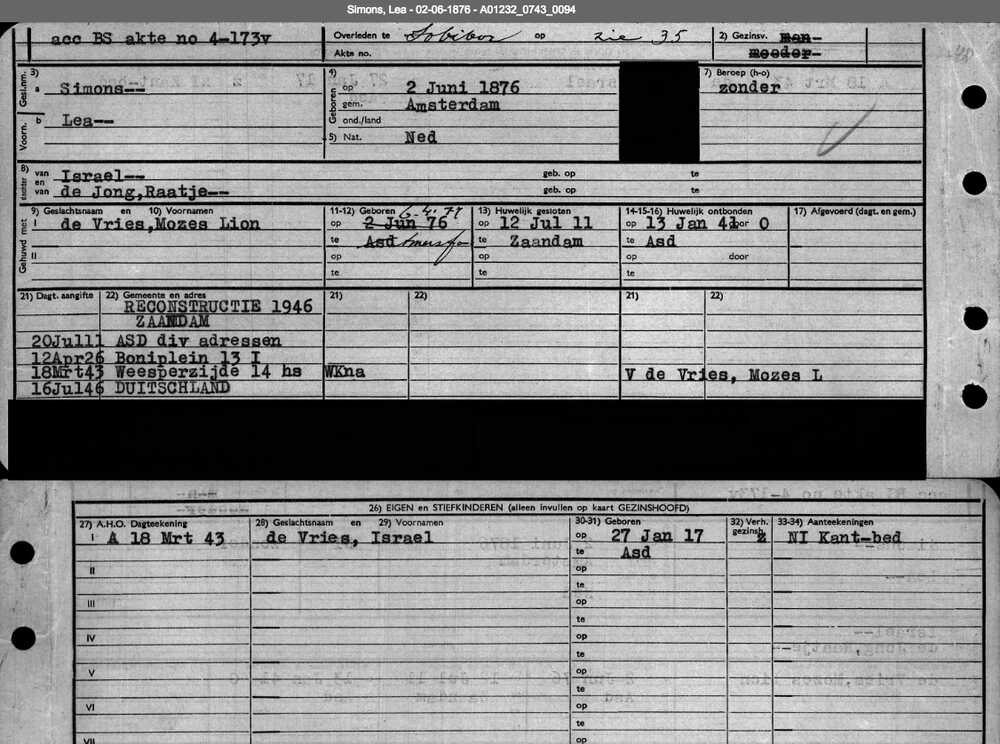 Simons, Lea - 02-06-1876 - A01232_0743_0094
acc BS akte no 4-173v
Overleden te Sobibor op zie 35
Akte no.
2) Gezinsv. man-
moeder-
Gesl.nm.
3)
a Simons--
Voorn.
b Lea--
4)
Geboren
op 2 Juni 1876
gem. Amsterdam
ond./land
5) Nat. Ned
7) Beroep (h-o)
zonder
8)
van Israel-- geb. op te
en
van de Jong,Raatje-- geb. op te
Gehuwd met
9) Geslachtsnaam en 10) Voornamen
I de Vries,Mozes Lion
II
11-12) Geboren 6.4.77
op 2 Jun 76
te Asd Amersfo
op
te
13) Huwelijk gesloten
op 12 Jul 11
te Zaandam
op
te
14-15-16) Huwelijk ontbonden
op 13 Jan 41 door O
te Asd
op door
te
17) Afgevoerd (dagt. en gem.)
21) Dagt. aangifte 22) Gemeente en adres 21) 22) 21) 22)
RECONSTRUCTIE 1946
ZAANDAM
20Jul11 ASD div adressen
12Apr26 Boniplein 13 I
18Mrt43 Weesperzijde 14 hs WKna V de Vries, Mozes L
16Jul46 DUITSCHLAND
26) EIGEN en STIEFKINDEREN (alleen invullen op kaart GEZINSHOOFD)
27) A.H.O. Dagteekening 28) Geslachtsnaam en 29) Voornamen 30-31) Geboren 32) Verh. gezinsh. 33-34) Aanteekeningen
I A 18 Mrt 43 de Vries, Israel op 27 Jan 17 z NI Kant-bed
te Asd
II op
te
III op
te
IV op
te
V op
te
VI op
te
VII op